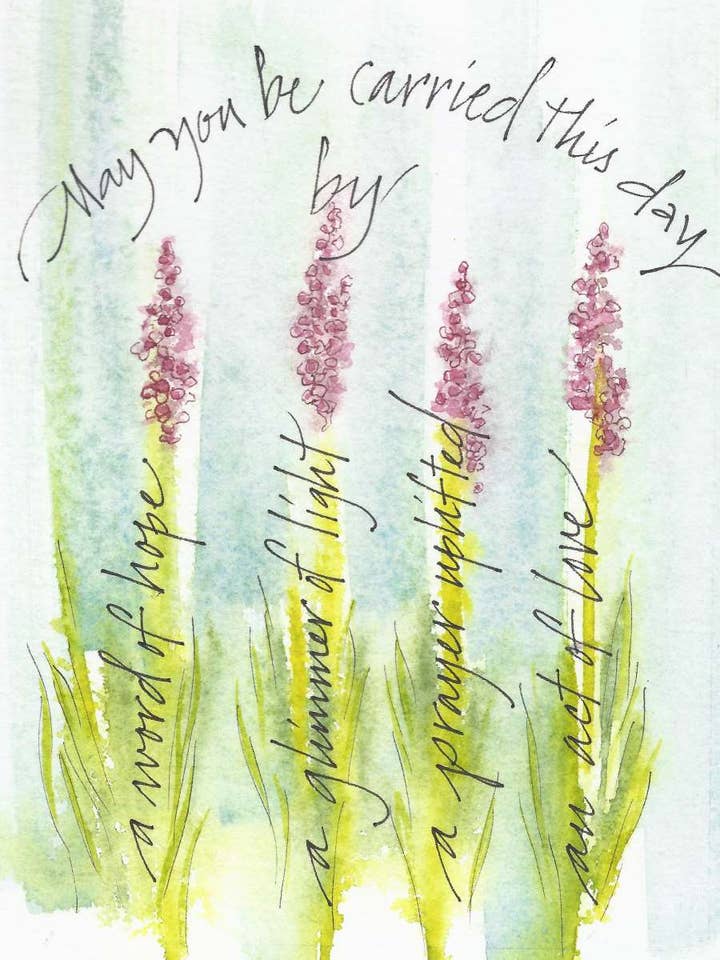 May you be carried this day
by
a word of hope
a glimmer of light
a prayer uplifted
an act of love